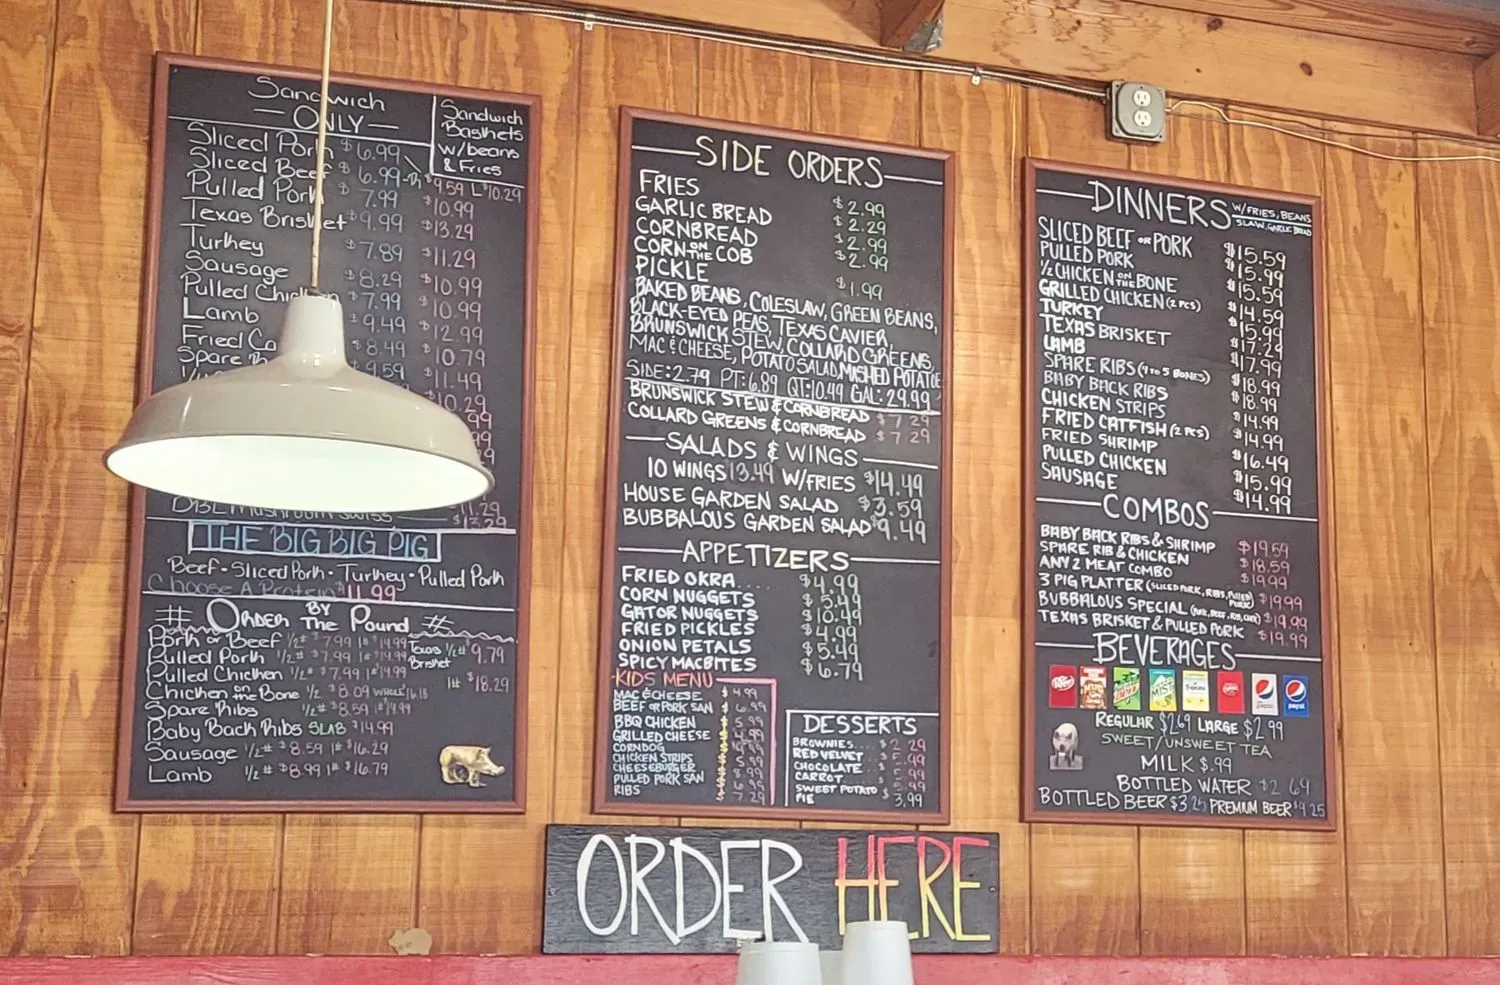 Sandwich
ONLY
Sandwich
Baskets
w/beans
& Fries
Sliced Pork $6.99
Sliced Beef $6.99 $9.59 L $10.29
Pulled Pork 7.99 $10.99
Texas Brisket $9.99 $13.29
Turkey $7.89 $11.29
Sausage $8.29 $10.99
Pulled Chicken $7.99 $10.99
Lamb $9.49 $12.99
Fried Ca $8.49 $10.79
Spare $9.59 $11.49
$10.29
DBL Mushroom Swiss $13.29
THE BIG BIG PIG
Beef · Sliced Pork · Turkey · Pulled Pork
Choose A Protein $11.99
# ORDER BY The Pound #
Pork or Beef 1/2# $7.99 1# $14.99
Pulled Pork 1/2# $7.99 1# $14.99
Pulled Chicken 1/2# $7.99 1# $14.99
Chicken on the Bone 1/2 $8.09 WHOLE $16.18
Spare Ribs 1/2# $8.59 1# $19.99
Baby Back Ribs SLAB $14.99
Sausage 1/2# $8.59 1# $16.29
Lamb 1/2# $8.99 1# $16.79
Texas 1/2# $9.79
Brisket
1# $18.29
SIDE ORDERS
FRIES $2.99
GARLIC BREAD $2.29
CORNBREAD $2.99
CORN ON THE COB $2.99
PICKLE $1.99
BAKED BEANS, COLESLAW, GREEN BEANS,
BLACK-EYED PEAS, TEXAS CAVIER,
BRUNSWICK STEW, COLLARD GREENS,
MAC & CHEESE, POTATO SALAD, MASHED POTATOE
SIDE: 2.79 PT: 6.89 QT: 10.49 GAL: 29.99
BRUNSWICK STEW & CORNBREAD $7.29
COLLARD GREENS & CORNBREAD $7.29
SALADS & WINGS
10 WINGS 13.49 W/FRIES $14.49
HOUSE GARDEN SALAD $3.59
BUBBALOUS GARDEN SALAD $9.49
APPETIZERS
FRIED OKRA $4.99
CORN NUGGETS $5.49
GATOR NUGGETS $10.49
FRIED PICKLES $4.99
ONION PETALS $5.49
SPICY MACBITES $6.79
KIDS MENU
MAC & CHEESE $4.99
BEEF OR PORK SAN $6.99
BBQ CHICKEN $5.99
GRILLED CHEESE
CORNDOG
CHICKEN STRIPS
CHEESEBURGER
PULLED PORK SAN
RIBS 7.29
DESSERTS
BROWNIES $2.29
RED VELVET $5.99
CHOCOLATE $5.99
CARROT $5.99
SWEET POTATO $5.99
PIE $3.99
DINNERS W/FRIES, BEANS
SLAW, GARLIC BREAD
SLICED BEEF OR PORK $15.59
PULLED PORK $15.99
1/2 CHICKEN ON THE BONE $15.59
GRILLED CHICKEN (2 PCS) $14.59
TURKEY $15.99
TEXAS BRISKET $17.29
LAMB $17.99
SPARE RIBS (4 TO 5 BONES) $18.99
BABY BACK RIBS $18.99
CHICKEN STRIPS $14.99
FRIED CATFISH (2 PCS) $14.99
FRIED SHRIMP $16.49
PULLED CHICKEN $15.99
SAUSAGE $14.99
COMBOS
BABY BACK RIBS & SHRIMP $19.59
SPARE RIB & CHICKEN $18.59
ANY 2 MEAT COMBO $19.99
3 PIG PLATTER (SLICED PORK, RIBS, PULLED PORK) $19.99
BUBBALOUS SPECIAL $19.99
TEXAS BRISKET & PULLED PORK $19.99
BEVERAGES
REGULAR $2.69 LARGE $2.99
SWEET/UNSWEET TEA
MILK $.99
BOTTLED WATER $2.69
BOTTLED BEER $3.25 PREMIUM BEER $4.25
ORDER HERE